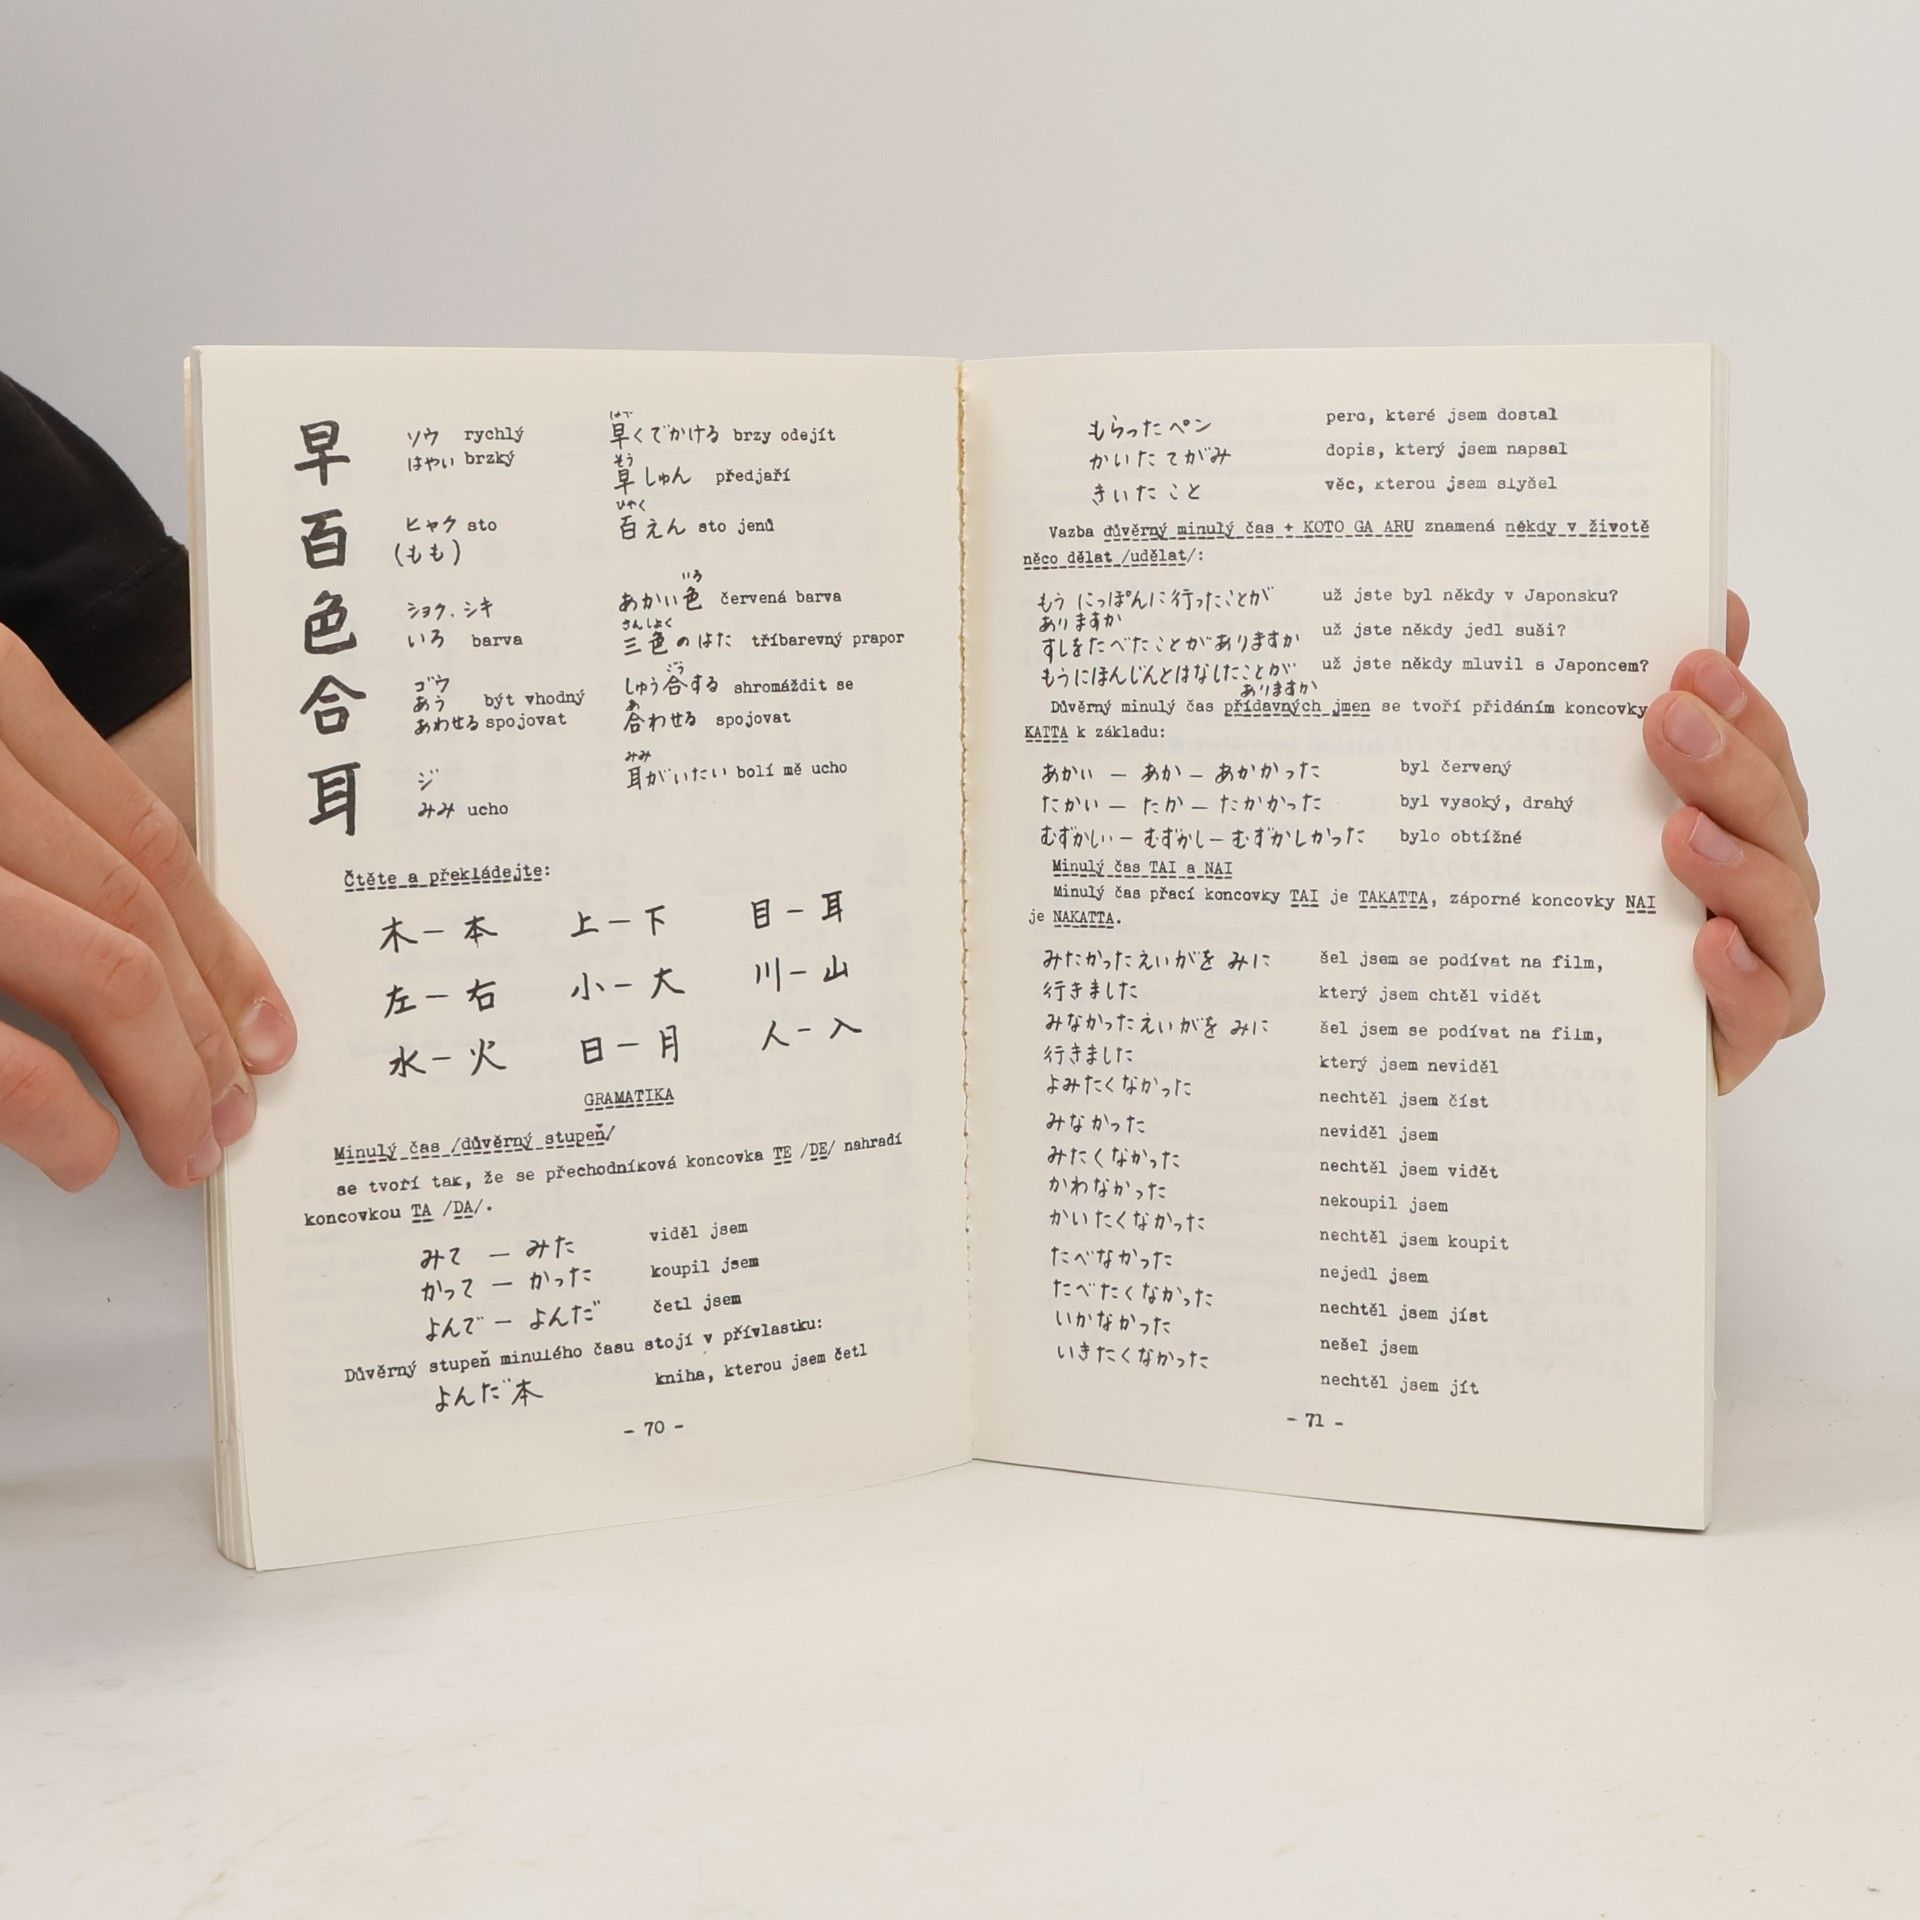 早 ソウ rychlý はやい brzký
早くでかける brzy odejít
そう
早しゅん předjaří
百 ヒャク sto (もも)
ひゃく
百えん sto jenů
色 ショク、シキ いろ barva
いろ
あかい色 červená barva
さんしょく
三色のはた tříbarevný prapor
合 ゴウ あう být vhodný あわせる spojovat
ごう
しゅう合する shromáždit se
あ
合わせる spojovat
耳 ジ みみ ucho
みみ
耳がいたい bolí mě ucho
Čtěte a překládejte:
木 — 本 上 — 下 目 — 耳
左 — 右 小 — 大 川 — 山
水 — 火 日 — 月 人 — 入
GRAMATIKA
Minulý čas /důvěrný stupeň/
se tvoří tak, že se přechodníková koncovka TE /DE/ nahradí
koncovkou TA /DA/.
みて — みた viděl jsem
かって — かった koupil jsem
よんで — よんだ četl jsem
Důvěrný stupeň minulého času stojí v přívlastku:
よんだ本 kniha, kterou jsem četl
- 70 -
もらったペン pero, které jsem dostal
かいたてがみ dopis, který jsem napsal
きいたこと věc, kterou jsem slyšel
Vazba důvěrný minulý čas + KOTO GA ARU znamená někdy v životě
něco dělat /udělat/:
もう にっぽんに行ったことが už jste byl někdy v Japonsku?
ありますか
すしをたべたことがありますか už jste někdy jedl suši?
もうにほんじんとはなしたことが už jste někdy mluvil s Japoncem?
ありますか
Důvěrný minulý čas přídavných jmen se tvoří přidáním koncovky
KATTA k základu:
あかい — あか — あかかった byl červený
たかい — たか — たかかった byl vysoký, drahý
むずかしい — むずかし — むずかしかった bylo obtížné
Minulý čas TAI a NAI
Minulý čas přací koncovky TAI je TAKATTA, záporné koncovky NAI
je NAKATTA.
みたかったえいがを みに šel jsem se podívat na film,
行きました který jsem chtěl vidět
みなかったえいがを みに šel jsem se podívat na film,
行きました který jsem neviděl
よみたくなかった nechtěl jsem číst
みなかった neviděl jsem
みたくなかった nechtěl jsem vidět
かわなかった nekoupil jsem
かいたくなかった nechtěl jsem koupit
たべなかった nejedl jsem
たべたくなかった nechtěl jsem jíst
いかなかった nešel jsem
いきたくなかった nechtěl jsem jít
- 71 -